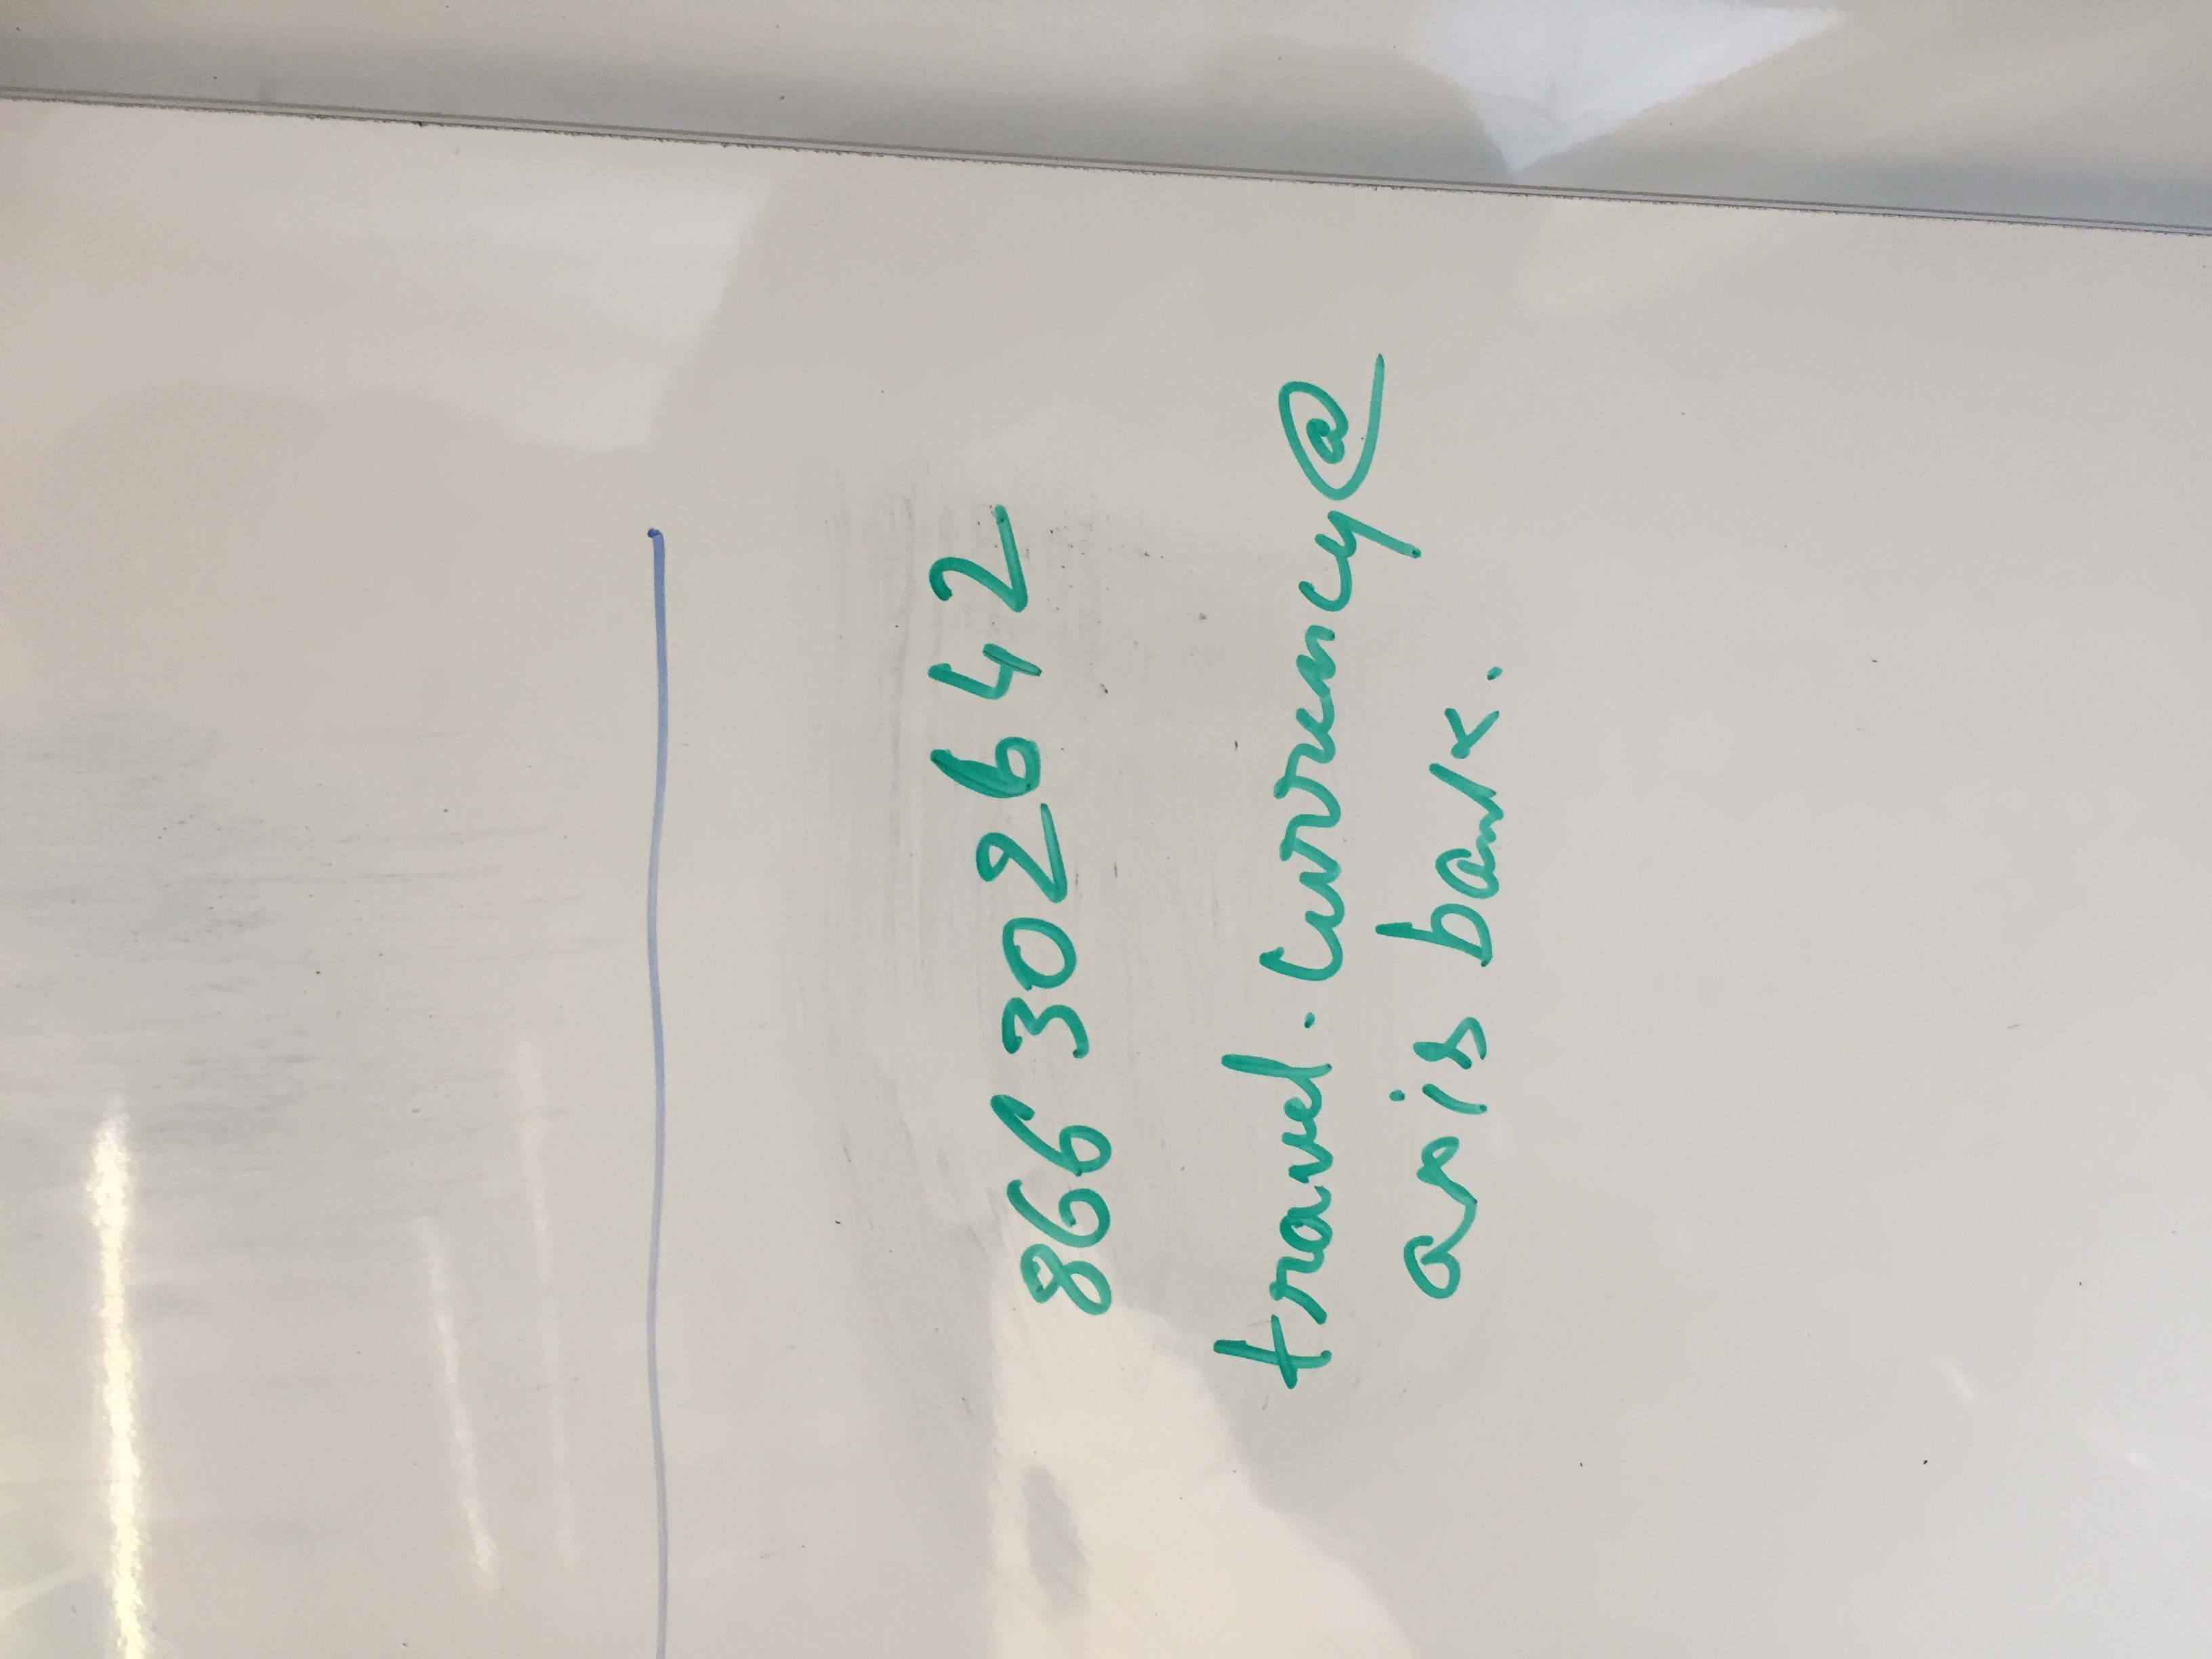 866 302642
travel.currency@
axis bank.